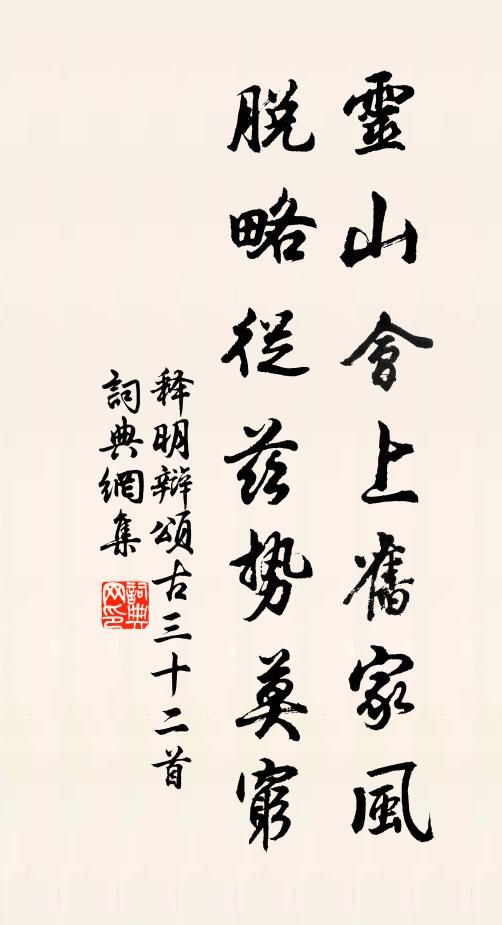 靈山會上舊家風
脱略從茲勢莫窮
释明辯頌古三十二首
詞典網集
詞典網印